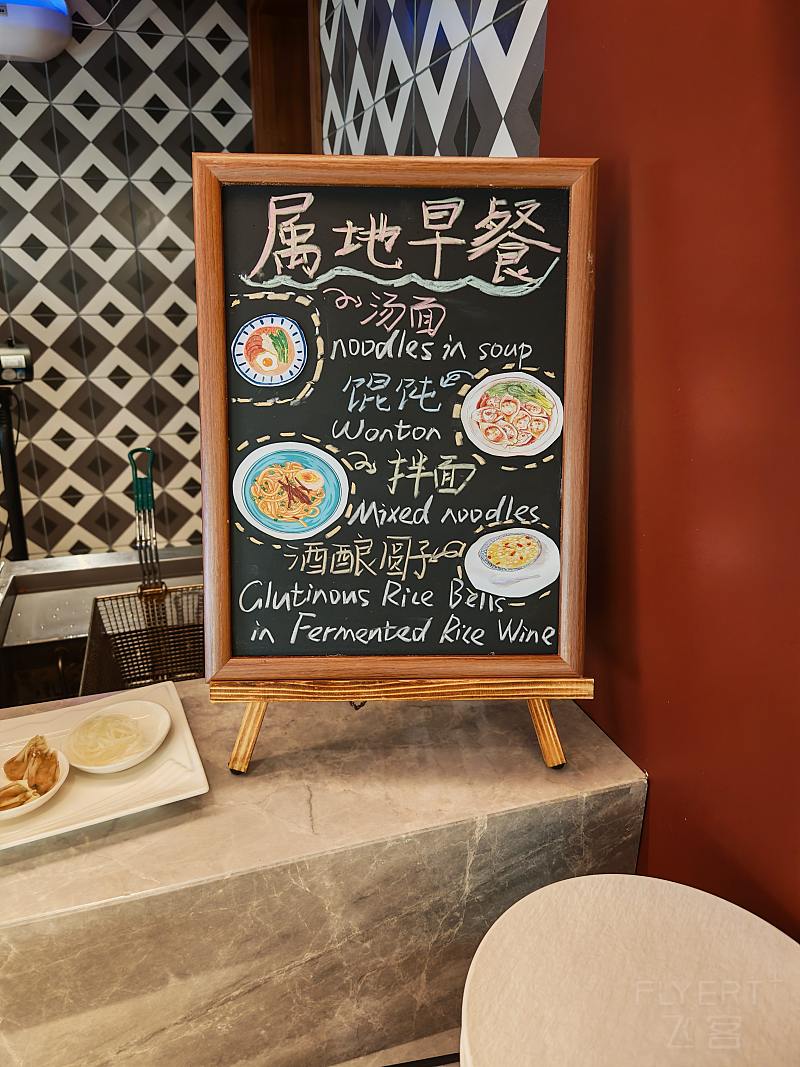 属地早餐
汤面
noodles in soup
馄饨
Wonton
拌面
Mixed noodles
酒酿圆子
Glutinous Rice Bells
in Fermented Rice Wine
FLYERT
飞客